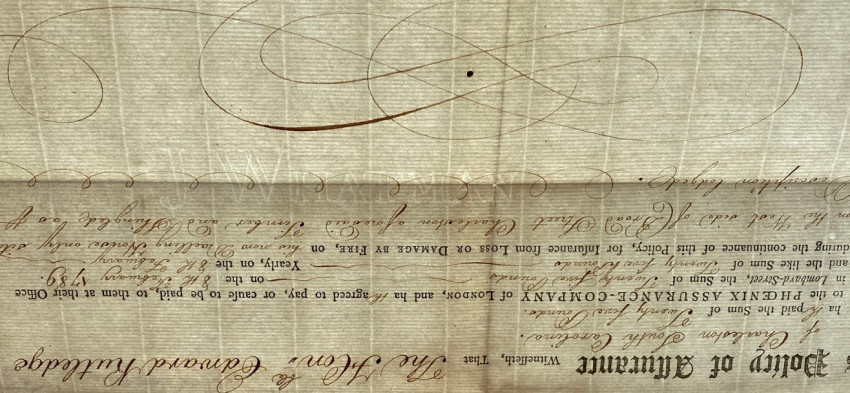 Policy of Aſſurance Witneſſeth, That The Hon.ble Edward Rutledge
of Charleston South Carolina.
ha th paid the Sum of Twenty five Pounds
to the PHŒNIX ASSURANCE-COMPANY of LONDON, and ha th agreed to pay, or cauſe to be paid, to them at their Office
Lombard-Street, the Sum of Twenty five Pounds on the 8th February 1789.
and the like Sum of Twenty five Pounds Yearly, on the 8th February
during the continuance of this Policy, for Inſurance from LOSS OR DAMAGE BY FIRE, on his now Dwelling House only
on the West side of Broad Street Charleston aforesaid Timber and Shingled as
Description lodged.